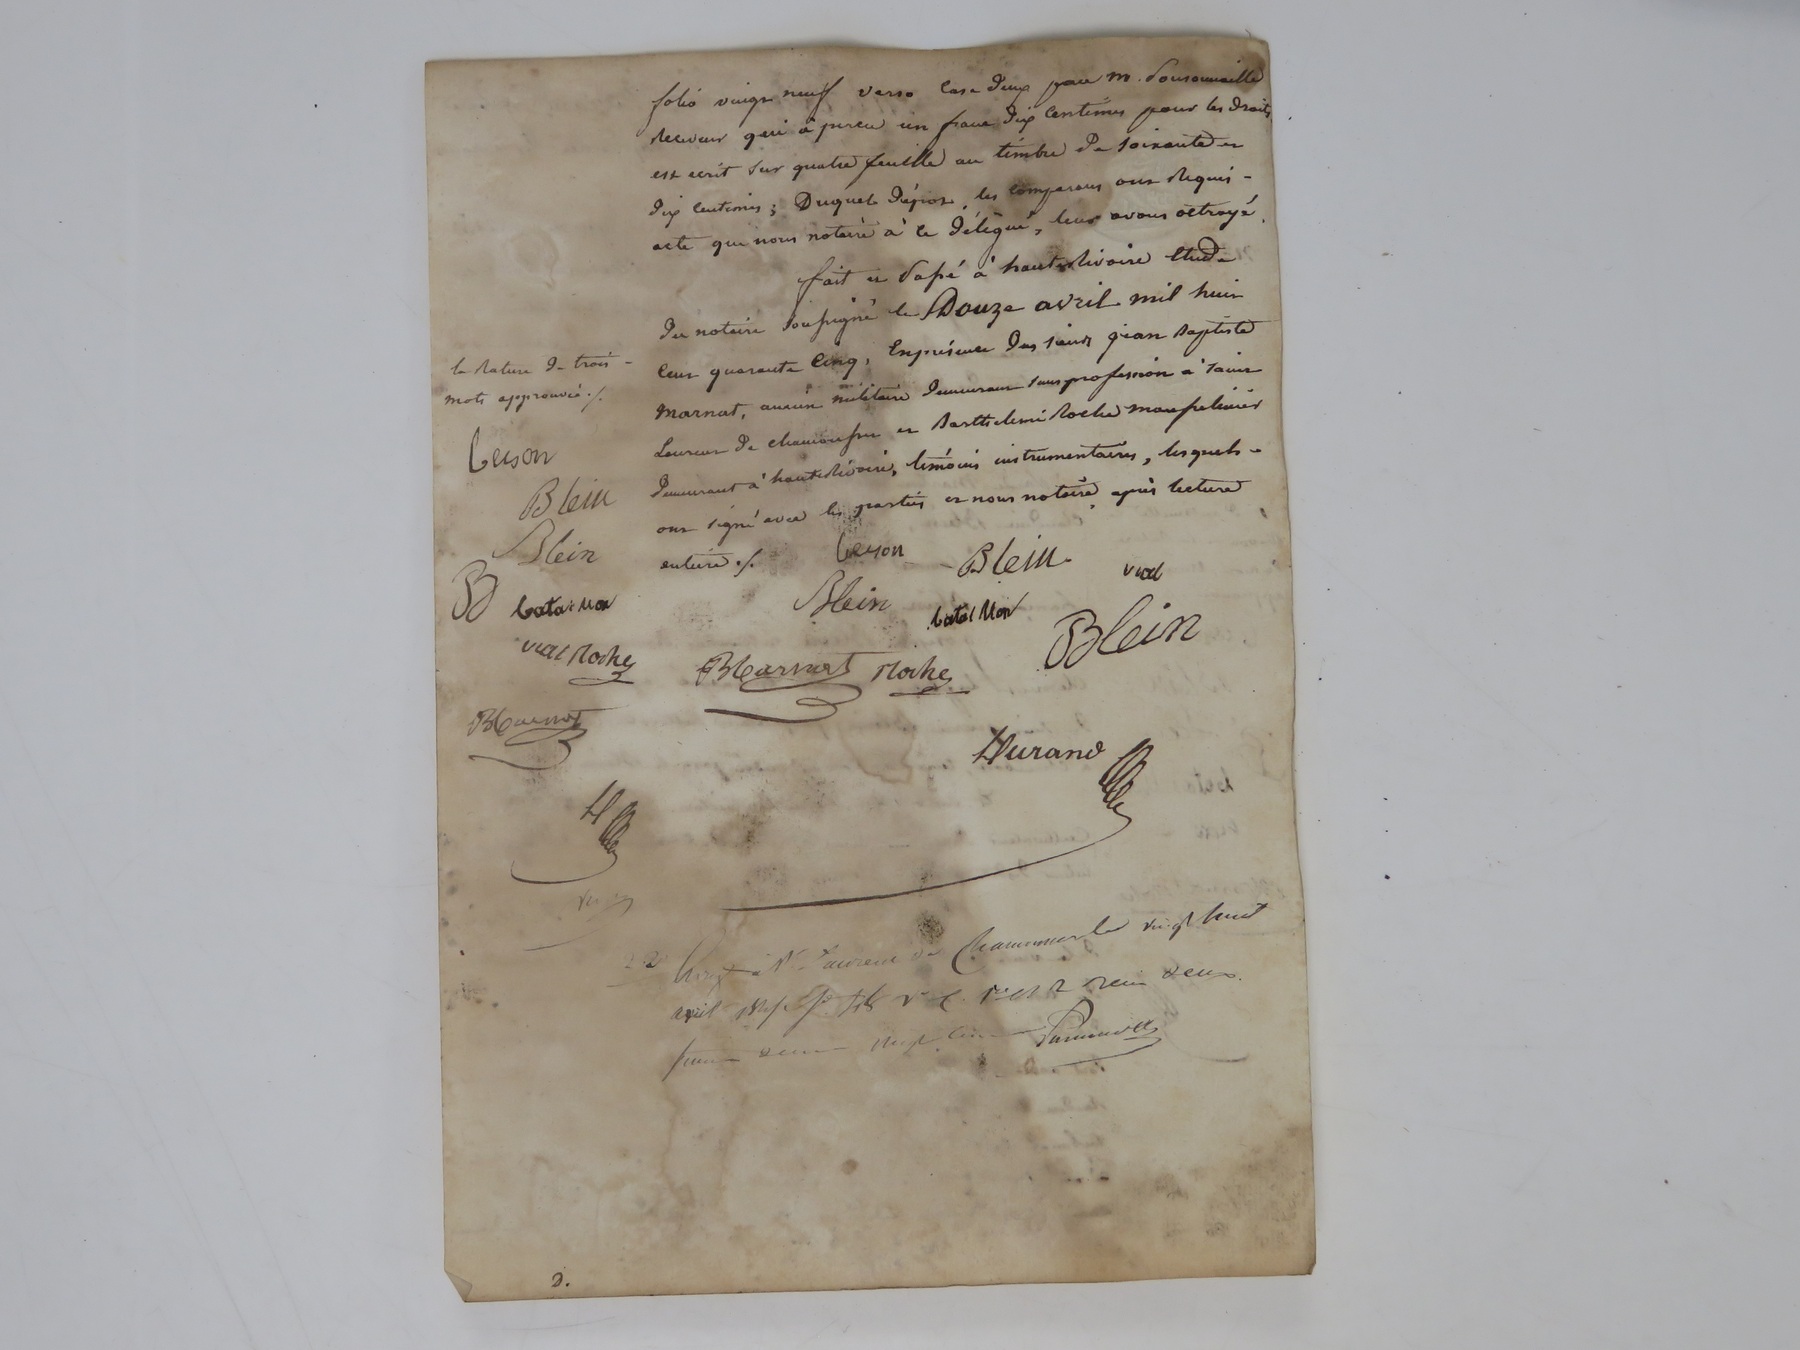 folio vingt neuf verso case deux par m.
Receveur qui à perçu un franc dix centimes pour les droits,
est ecrit sur quatre feuille au timbre de soixante et
dix centimes; Duquel dépot, les comparans ont requis -
acte que nous notaire à ce délégué, leur avons octroyé.
fait et passé à hauterivoire Etude
du notaire soussigné le Douze avril mil huit
cent quarante cinq, en présence des sieurs jean Baptiste
marnat, ancien militaire demeurant sans profession à saint
Laurent de chamousset et Barthelemi Roche
demeurant à hauterivoire, témoins instrumentaires, lesquels -
ont signé avec les parties et nous notaire, après lecture
entière ./.
la Rature de trois -
mots approuvée ./.
Blein
Blein
B
bataillon
vial Roche
Blein
vial
Blein
bataillon
Blein
Marnat Roche
Marnat
Durand
D
à St Laurent de Chamousset le vingt huit
avril deux
Dr.